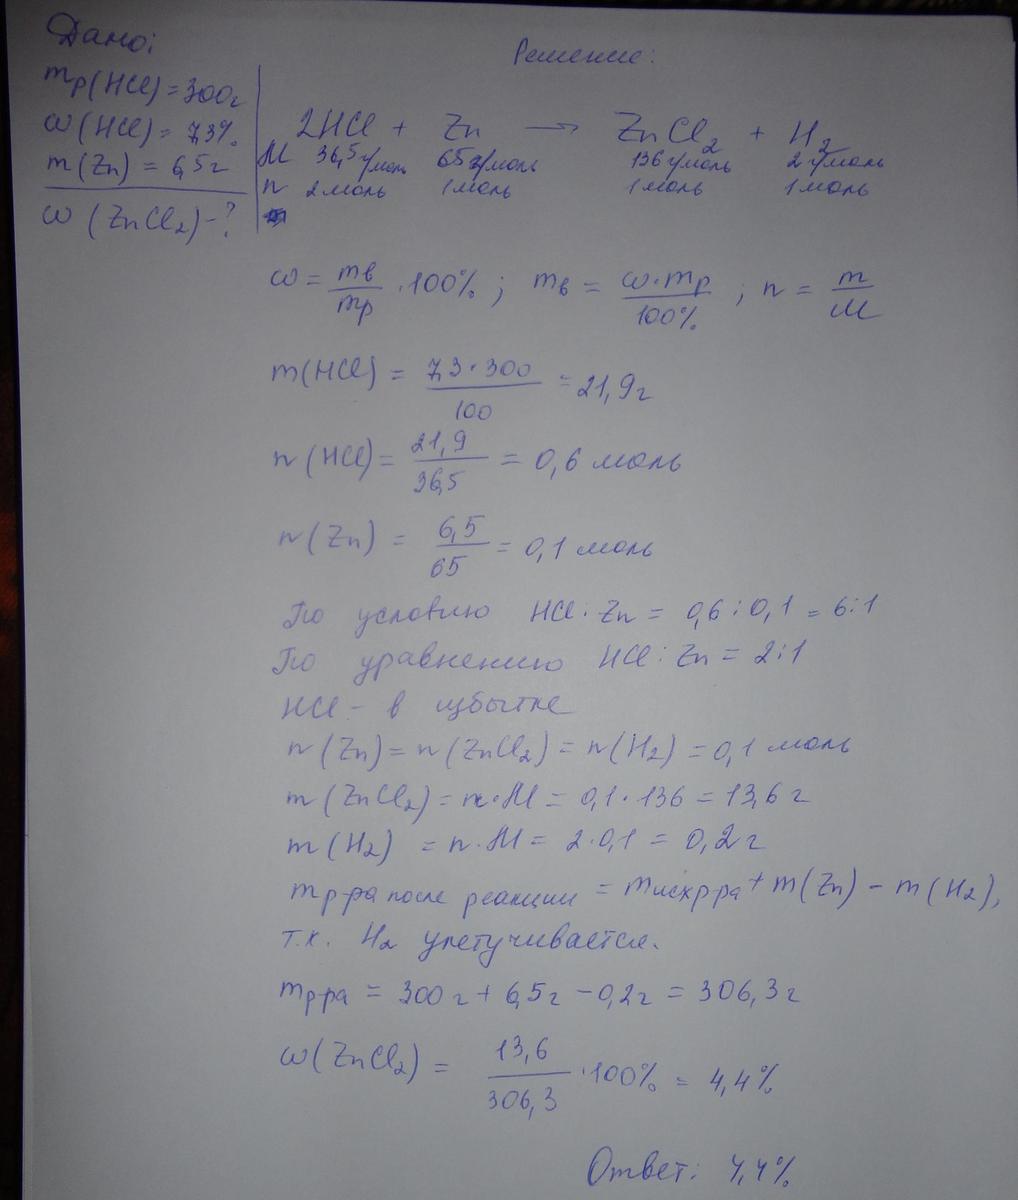 Дано:
mр(HCl) = 300г
ω(HCl) = 7,3%
m(Zn) = 6,5г
ω(ZnCl₂) - ?
Решение:
2HCl + Zn → ZnCl₂ + H₂
M 36,5г/моль 65г/моль 136г/моль 2г/моль
n 2моль 1моль 1моль 1моль
ω = mв/mр · 100% ; mв = ω·mр/100% ; n = m/M
m(HCl) = 7,3·300/100 = 21,9г
n(HCl) = 21,9/36,5 = 0,6 моль
n(Zn) = 6,5/65 = 0,1 моль
По условию HCl : Zn = 0,6 : 0,1 = 6:1
По уравнению HCl : Zn = 2:1
HCl - в избытке
n(Zn) = n(ZnCl₂) = n(H₂) = 0,1 моль
m(ZnCl₂) = n·M = 0,1·136 = 13,6 г
m(H₂) = n·M = 2·0,1 = 0,2 г
mр-ра после реакции = mисх р-ра + m(Zn) - m(H₂),
т.к. H₂ улетучивается.
mр-ра = 300г + 6,5г - 0,2г = 306,3г
ω(ZnCl₂) = 13,6/306,3 · 100% = 4,4%
Ответ: 4,4%